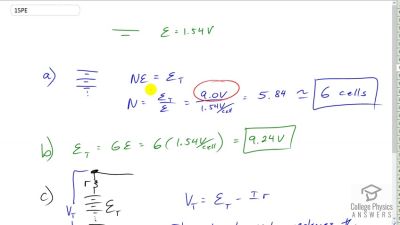 15PE
ℰ = 1.54V
a) Nℰ = ℰ_T
N = ℰ_T/ℰ = 9.0V / 1.54 V/cell = 5.84 ≃ 6 cells
b) ℰ_T = 6ℰ = 6(1.54 V/cell) = 9.24V
c) r
V_T ℰ_T V_T = ℰ_T - Ir
College Physics
ANSWERS